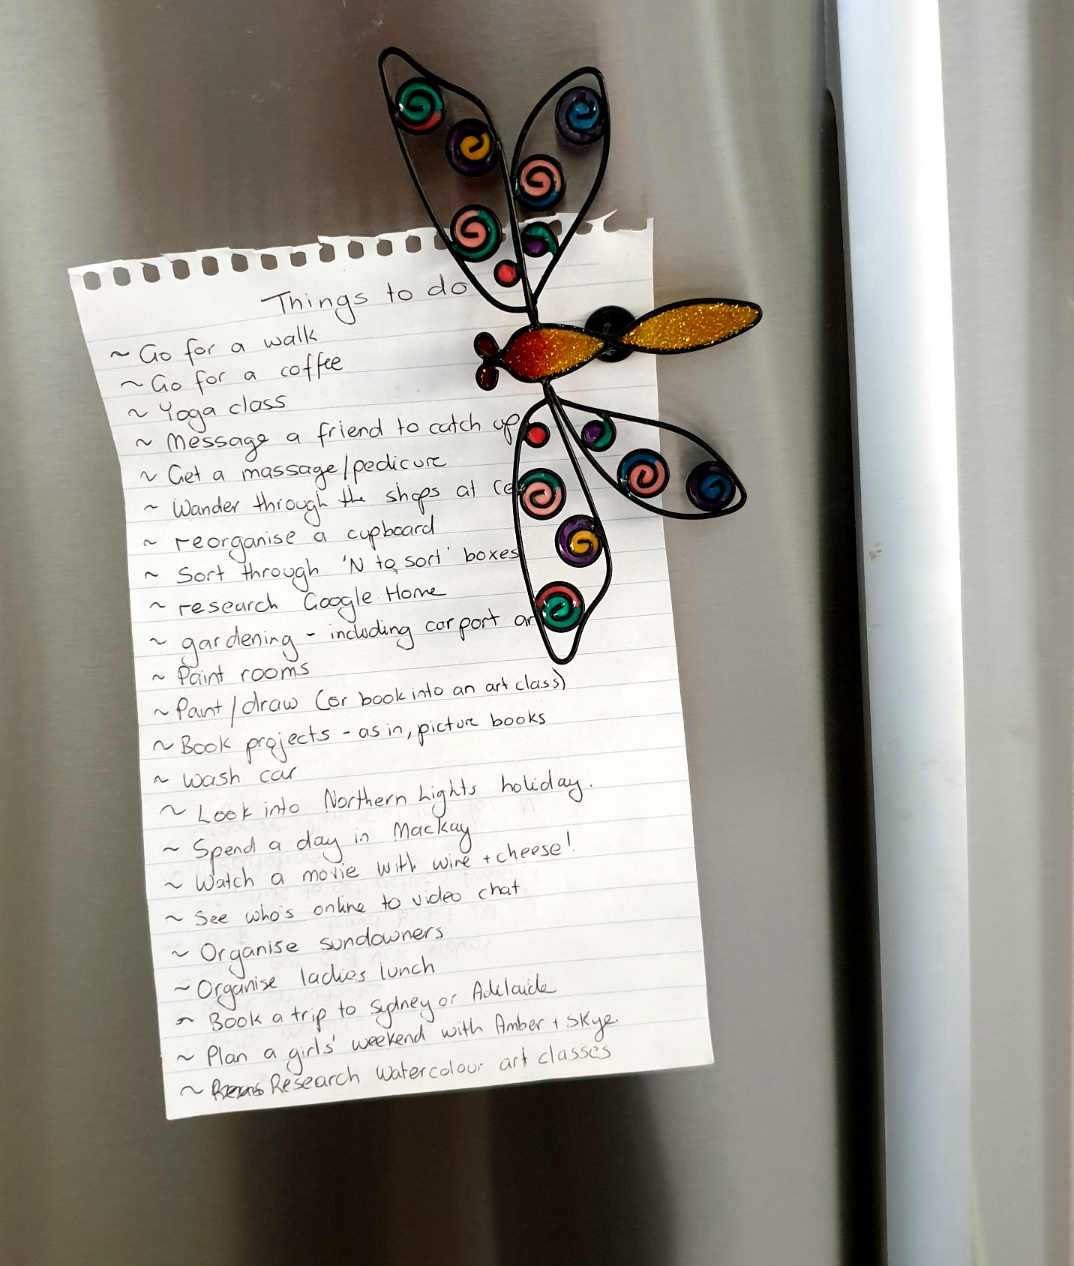 Things to do
~ Go for a walk
~ Go for a coffee
~ Yoga class
~ Message a friend to catch up
~ Get a massage/pedicure
~ Wander through the shops at
~ reorganise a cupboard
~ Sort through 'N to sort' boxes
~ research Google Home
~ gardening - including carport
~ Paint rooms
~ Paint/draw (or book into an art class)
~ Book projects - as in, picture books
~ wash car
~ Look into Northern Lights holiday.
~ Spend a day in Mackay
~ Watch a movie with wine + cheese!
~ See who's online to video chat
~ Organise sundowners
~ Organise ladies lunch
~ Book a trip to Sydney or Adelaide
~ Plan a girls' weekend with Amber + Skye.
~ Research Watercolour art classes